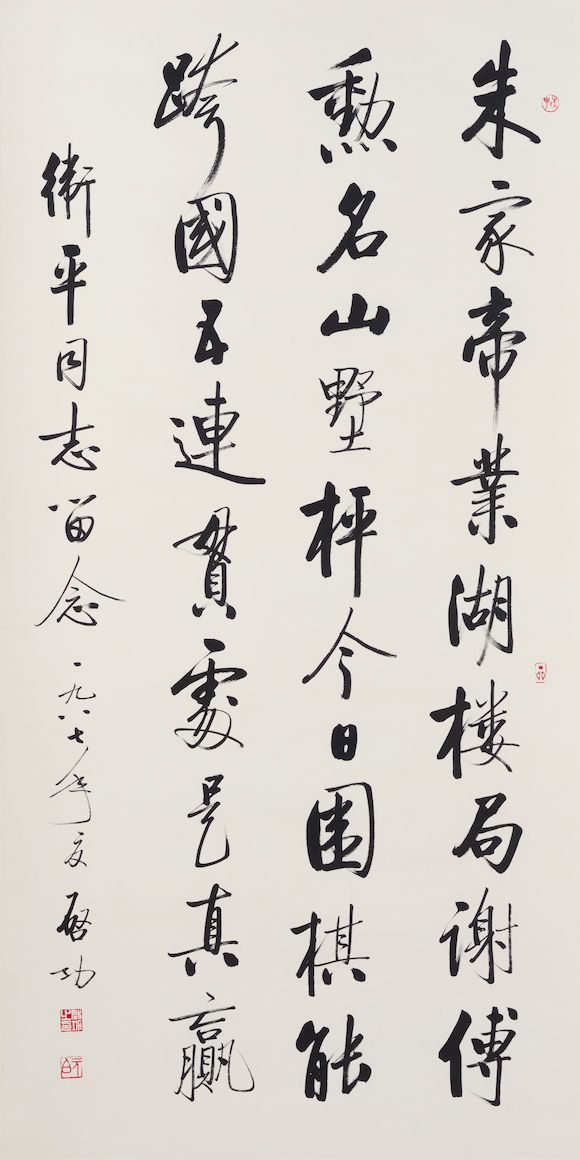 朱家帝業湖楼局谢傅
勲名山墅枰今日圍棋能
跨國五連貫處是真贏
衛平同志留念一九八七年夏啓功